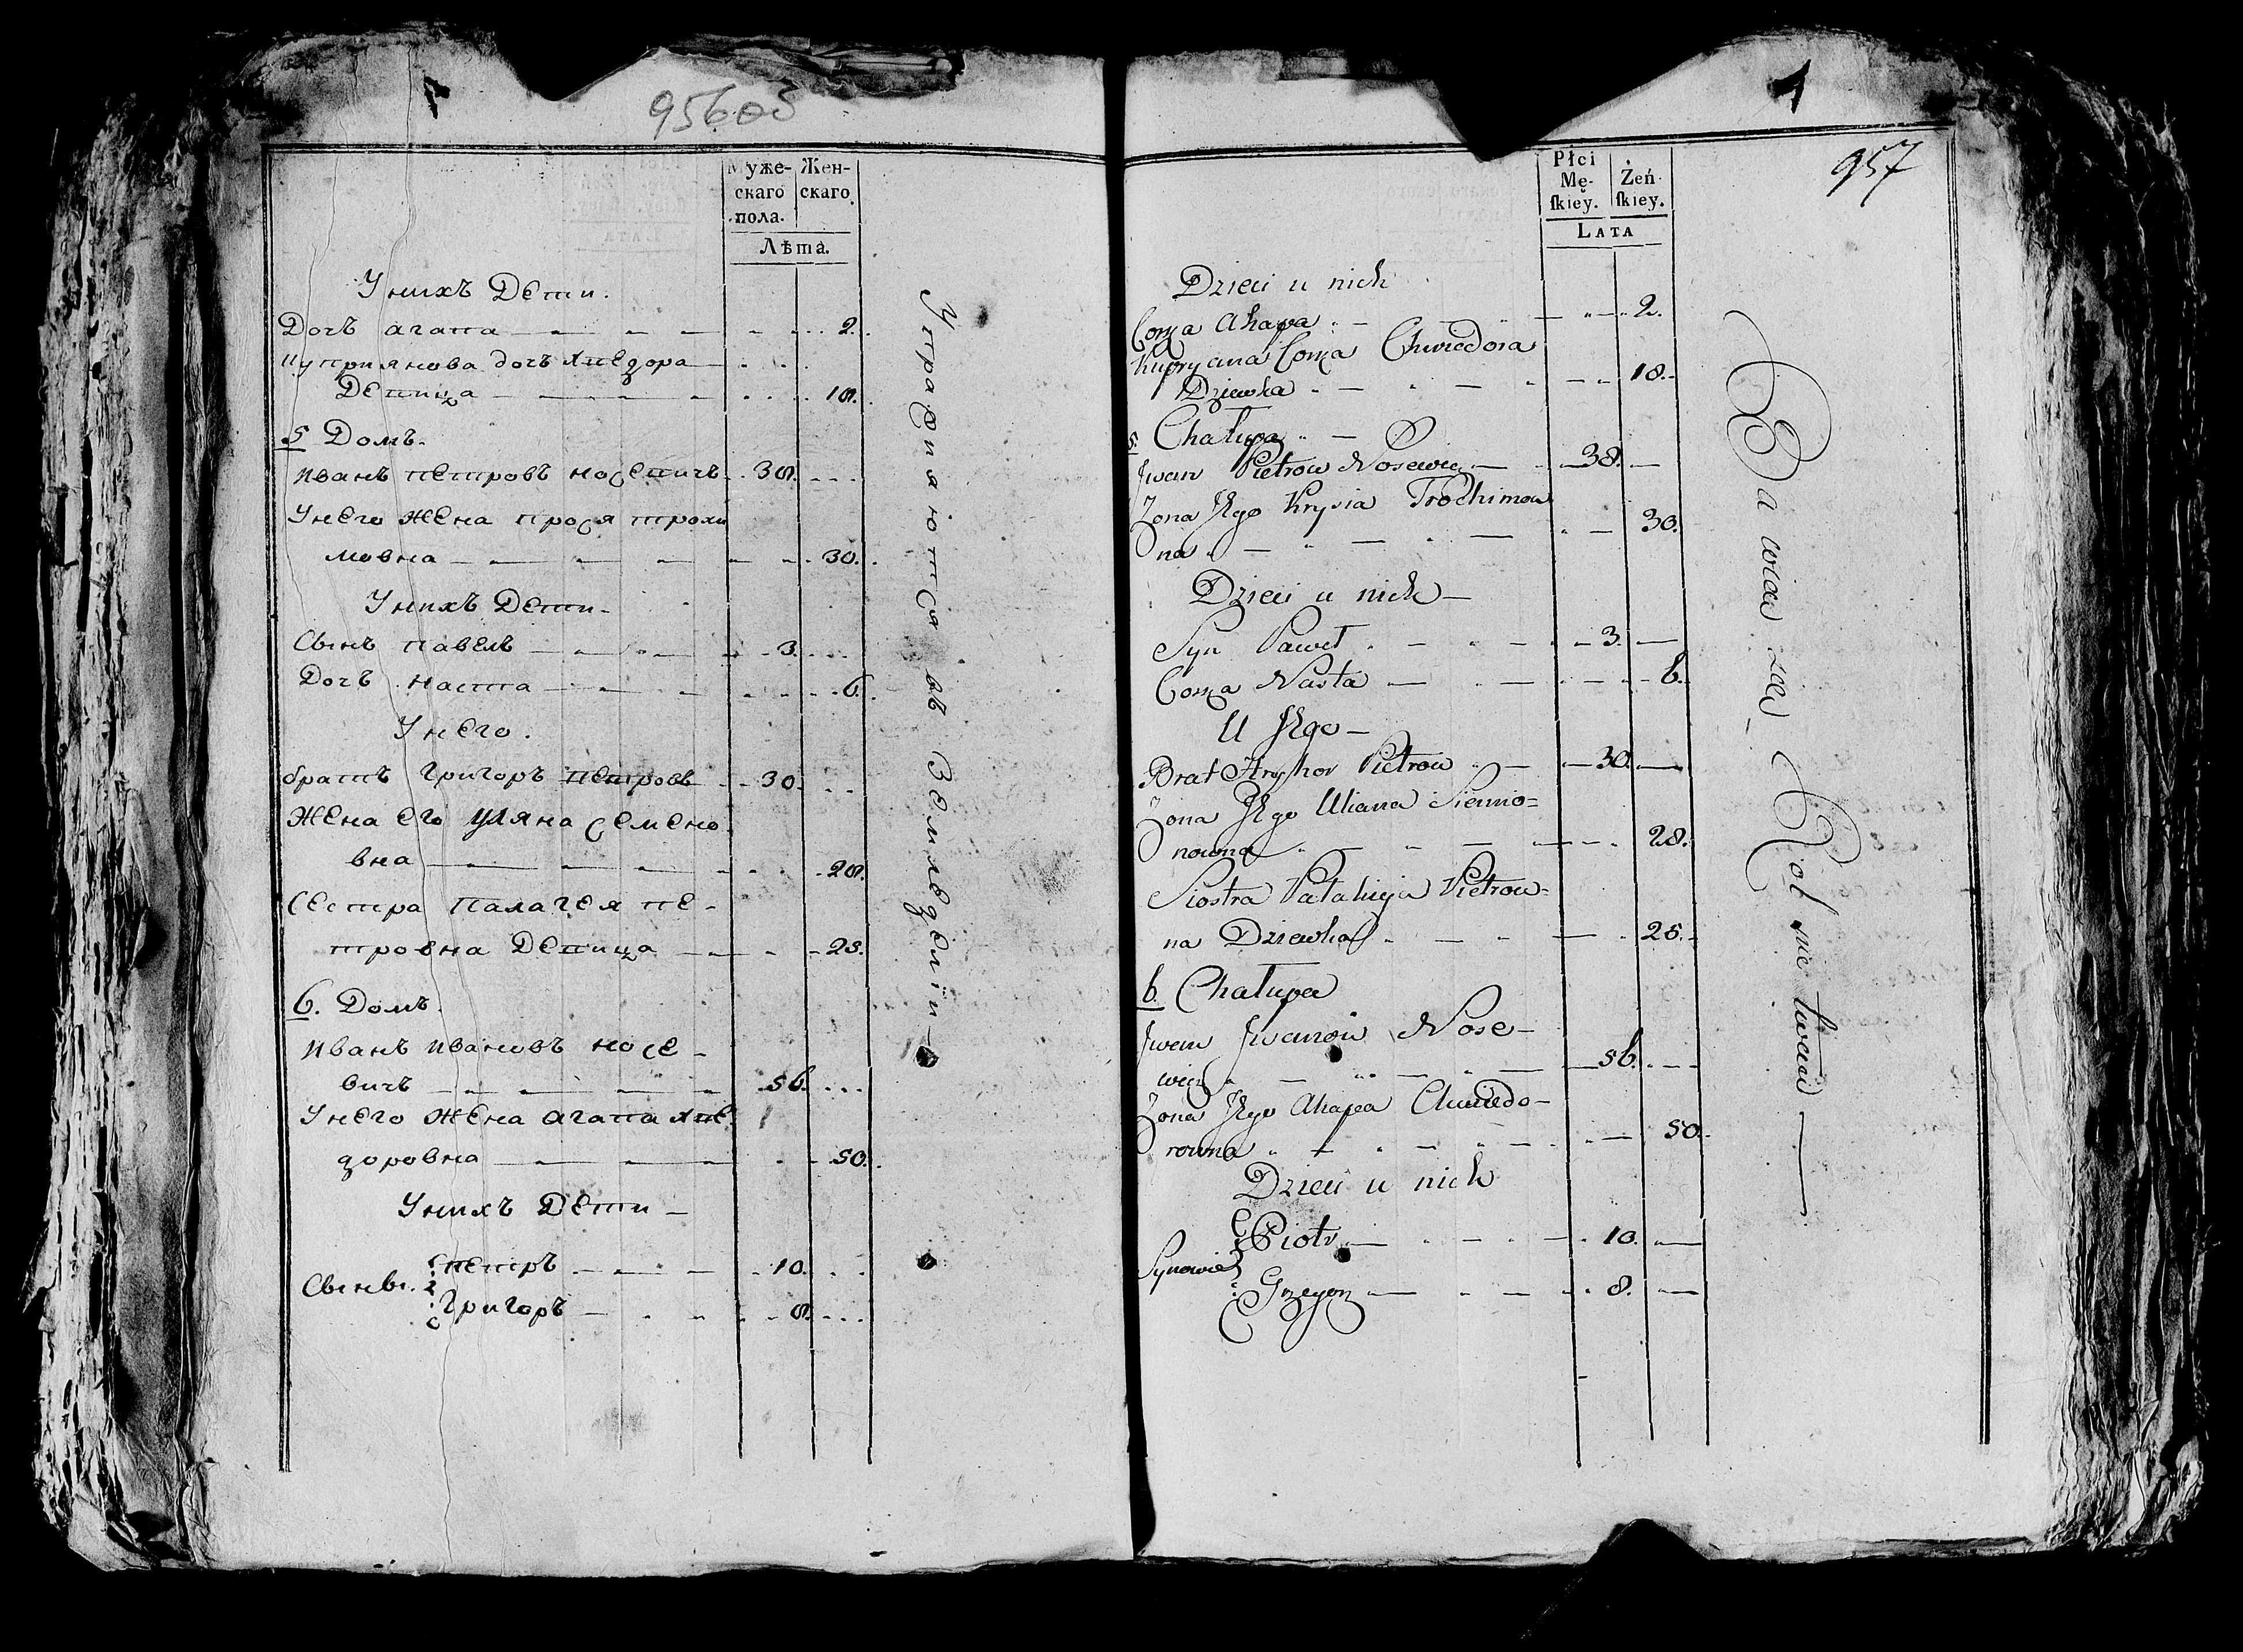 956об
Муже-
скаго
пола.
Жен-
скаго
Лѣта.
У нихъ Дети.
Дочъ агапа 2.
куприянова дочъ хведора
Девица 18.
5 Домъ.
иванъ петровъ носевичъ 38.
У него жена прося трохи
мовна 30.
У нихъ Дети
Сынъ павелъ 3.
Дочъ наста 6.
У него.
братъ григоръ петровъ 30.
Жена его уляна семено
вна 28.
Сестра палагея пе-
тровна Девица 25.
6. Домъ.
иванъ ивановъ носе-
вичъ 56.
У него жена агапа хве
доровна 50.
У нихъ Дети
Сынви. петръ 10.
григоръ 8.
Упражняются въ Земледелiи
957
Płci
Mę-
ſkiey.
Żeń-
ſkiey.
LATA
Dzieci u nich
Corka Ahapa 2.
Kupryana Corka Chwiedora
Dziewka 18.
5. Chałupa
Jwan Pietrow Nosewicz 38.
Zona Jego Krysia Trochimow
na 30.
Dzieci u nich
Syn Paweł 3.
Corka Nasta 6.
U Jego
Brat Hryhor Pietrow 30.
Zona Jego Uliana Siemio=
nowna 28.
Siostra Pałahieja Pietrow=
na Dziewka 25.
6. Chałupa
Jwan Jwanow Nose-
wicz 56.
Zona Jego Ahapa Chwiedo-
rowna 50.
Dzieci u nich
Synowie Piotr 10.
Grzegorz 8.
Bawiąc się Rolnictwem